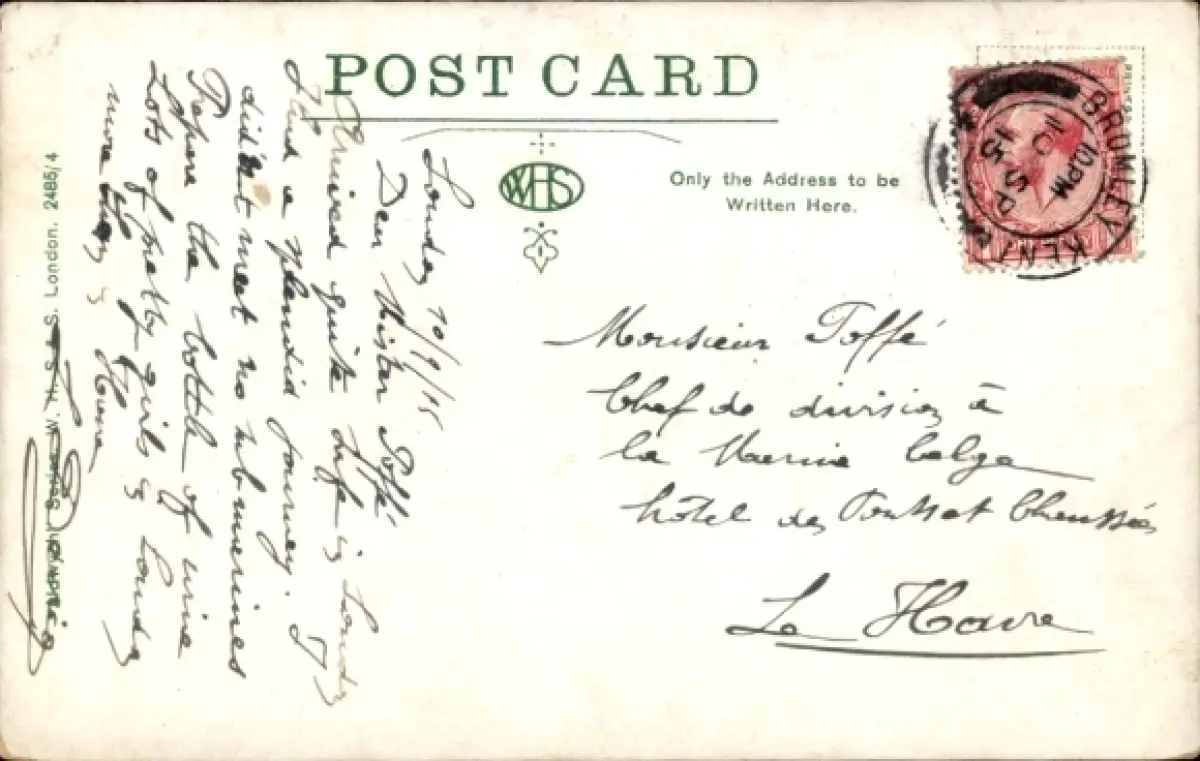 POST CARD
WHS
Only the Address to be
Written Here.
BROMLEY KENT
10 PM
10 SP
15
London 10/9/15
Dear Mister Toffé
Arrived quite safe in London
Had a splendid journey. I
did'nt meet no submarines
Prepare the bottle of wine
Lots of pretty girls in London
more than in Havre
Monsieur Toffé
Chef de division à
la Marine belge
hôtel des Ponts et Chaussées
Le Havre
W. H. S. & S. London. 2485/4